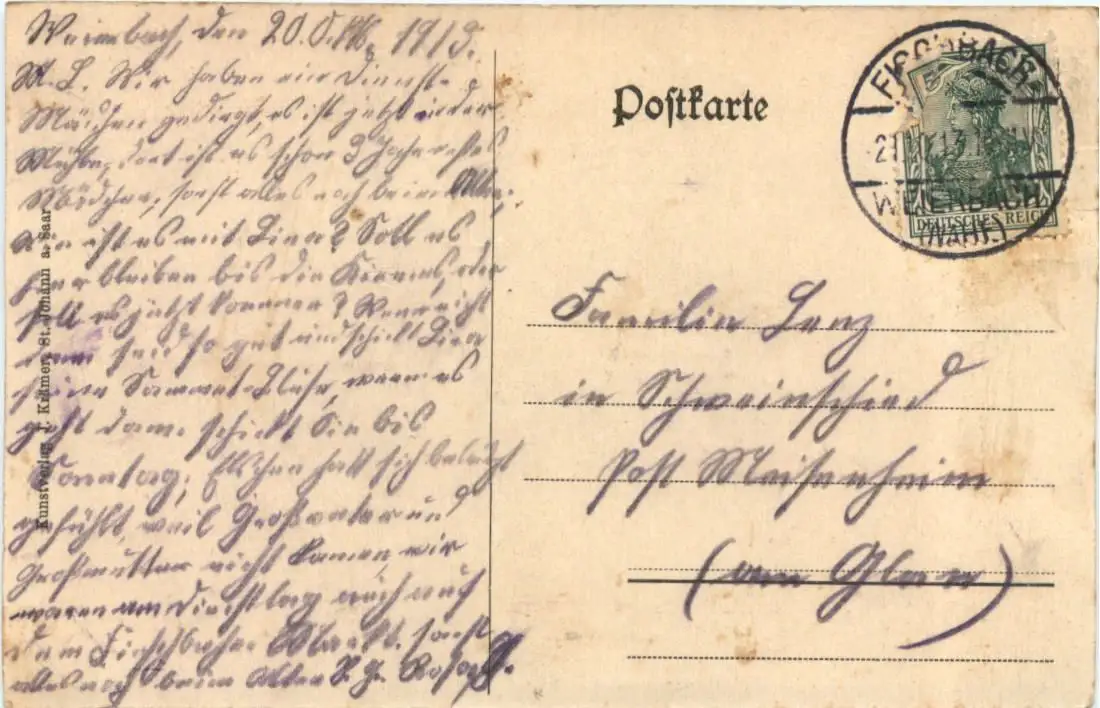 Weierbach, den 20. Okt. 1913.
M. L. Wir haben ein Dienst-
Mädchen gedingt, es ist jetzt in der
Mühle, dort ist es schon 3 Jahre
Mädchen, sonst alles noch beim Alten,
wie ist es mit Lina? Soll es
hier bleiben bis die Kirmes, oder
soll es jetzt kommen? Wenn nicht
dann seid so gut und schickt Lina
seine Sammet-Bluse, wenn es
geht dann schickt Sie bis
Sonntag, Elschen hatt sich beleidigt
gefühlt weil Großvater und
Großmutter nicht kamen, wir
waren am Dienstag auch auf
dem Fischbacher Markt. sonst
alles noch beim Alten
Kunstverlag J. Krämer, St. Johann a. Saar
Postkarte
FISCHBACH-
WEIERBACH
(NAHE)
DEUTSCHES REICH
Familie Lenz
in Schweinschied
Post Meisenheim
(am Glan)